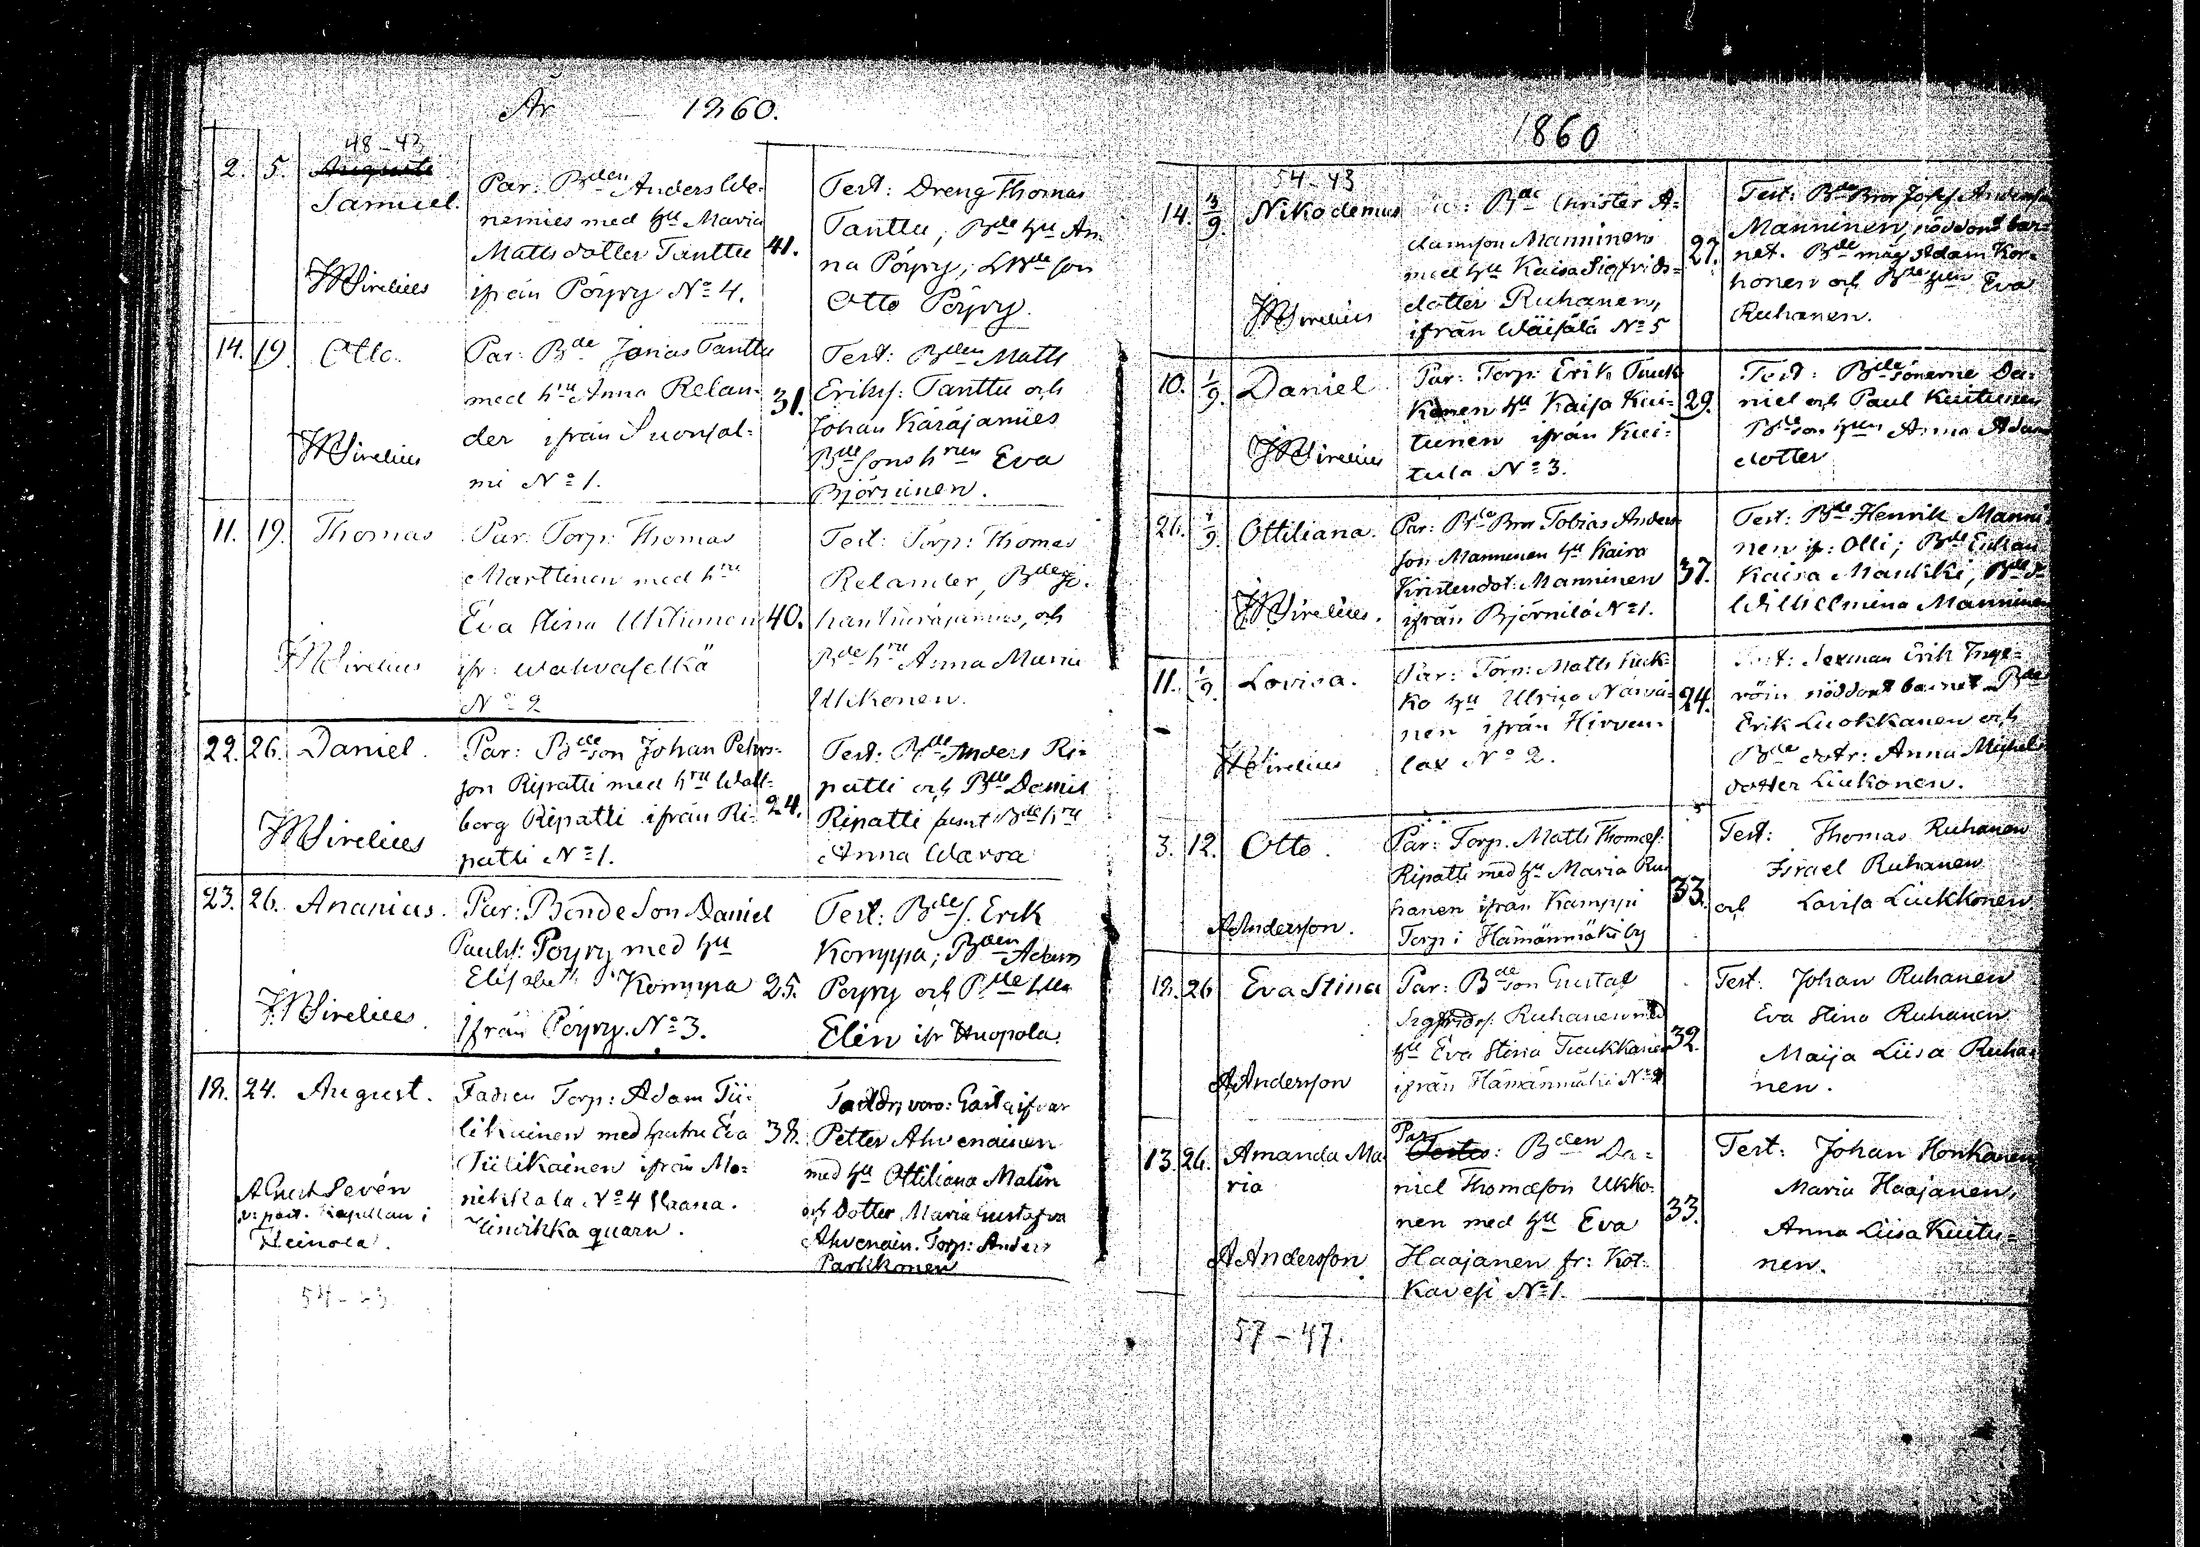 År 1860.
48-43
2. 5. Auguste
Samuel.
JWSirelius
Par: Bden Anders We-
nemies med hu Maria
Matts dotter Tanttu
ifrån Pöyry No 4.
41.
Test: Dreng Thomas
Tanttu, Bde hu An-
na Pöyry, Bde son
Otto Pöyry.
14. 19. Otto.
JWSirelius
Par: Bde Jonas Tanttu
med hru Anna Relan-
der ifrån Suonsal-
mi No 1.
31.
Test: Bden Matts
Eriks: Tanttu och
Johan Käräjämies
Bde sons hrun Eva
Björninen.
11. 19. Thomas
JWSirelius
Par: Torp: Thomas
Marttinen med hru
Eva Stina Ukkonen
ifr: Wahvaselkä
No 2
40.
Test: Torp: Thomas
Relander, Bde Jo-
han Käräjämies, och
Bde hru Anna Maria
Ukkonen.
22. 26. Daniel.
JWSirelius
Par: Bde son Johan Pehrs-
son Ripatti med hru Wall-
borg Ripatti ifrån Ri-
patti No 1.
24.
Test: Bde Anders Ri-
patti och Bde Daniel
Ripatti samt Bde hru
Anna Warsa
23. 26. Ananias.
JWSirelius.
Par: Bonde Son Daniel
Pauls: Pöyry med hu
Elisabet Komppa
ifrån Pöyry. No 3.
25.
Test: Bde s. Erik
Komppa; Bden Adam
Pöyry och Bde hu
Elin ifr Huopola.
18. 24. August.
A Gust Levén
v: past. Kapellan i
Heinola.
Fadren Torp: Adam Tii-
likainen med hustru Eva
Tiilikainen ifrån Mo-
nikkala No 4 Haana.
Hinrikka quarn.
38.
Faddr; voro: Gårdaifvar
Petter Ahvenainen
med hu Ottiliana Malin
och Dotter Maria Gustafva
Ahvenain. Torp: Anders
Parkkonen
54-43.
1860
54-43
14. 3/9. Nikodemus
JWSirelius
Bde Christer A-
damsson Manninen
med hu Kaisa Sigfrids-
dotter Ruhanen,
ifrån Wäisälä No 5
27.
Test: Bde Bror Josef Anderson
Manninen, nöddöpt bar-
net. Bde måg Adam Kor-
honen och Bde hun Eva
Ruhanen.
10. 1/9. Daniel
JWSirelius
Par: Torp: Erik Tuuk-
kanen hu Kaisa Kui-
tunen ifrån Kui-
tula No 3.
29.
Test: Bde sönerne Da-
niel och Paul Kuitunen
Bde son hun Anna Adams
dotter
26. 1/9. Ottiliana.
JWSirelius.
Par: Bde Bror Tobias Anders-
son Manninen hu Kaisa
Kristersdot: Manninen
ifrån Björnilä No 1.
37.
Test: Bde Henrik Manni-
nen ifr: Olli; Bde Enkan
Kaisa Maukki,
Wilhelmina Manninen
11. 1/9. Lovisa.
JWSirelius
Par: Torp: Matts Liuk-
ko hu Ulrica Näivä-
nen ifrån Hirven-
lax No 2.
24.
Test: Sexman Erik Inge-
röin nöddöpt barnet Bde
Erik Luokkanen och
Bde dotr: Anna Michels
dotter Liukonen.
3. 12. Otto.
AAndersson.
Par: Torp. Matts Thomæs:
Ripatti med hu Maria Ru-
hanen ifrån Kamppi
Torp i Hämänmäki by
33.
Test: Thomas Ruhanen
Israel Ruhanen
och Lovisa Liukkonen.
18. 26 Eva Stina
AAndersson
Par: Bde son Gustaf
Sigfrids: Ruhanen med
hu Eva Stina Tuukkanen
ifrån Hämänmäki No 2
32.
Test. Johan Ruhanen
Eva Stina Ruhanen
Maija Liisa Ruha-
nen.
13. 26. Amanda Ma
ria
AAndersson
Par
Testes: Bden Da-
niel Thomæson Ukko-
nen med hu Eva
Haajanen fr: Kot-
kavesi No 1.
33.
Test: Johan Honkanen
Maria Haajanen,
Anna Liisa Kuitu-
nen.
57-47.